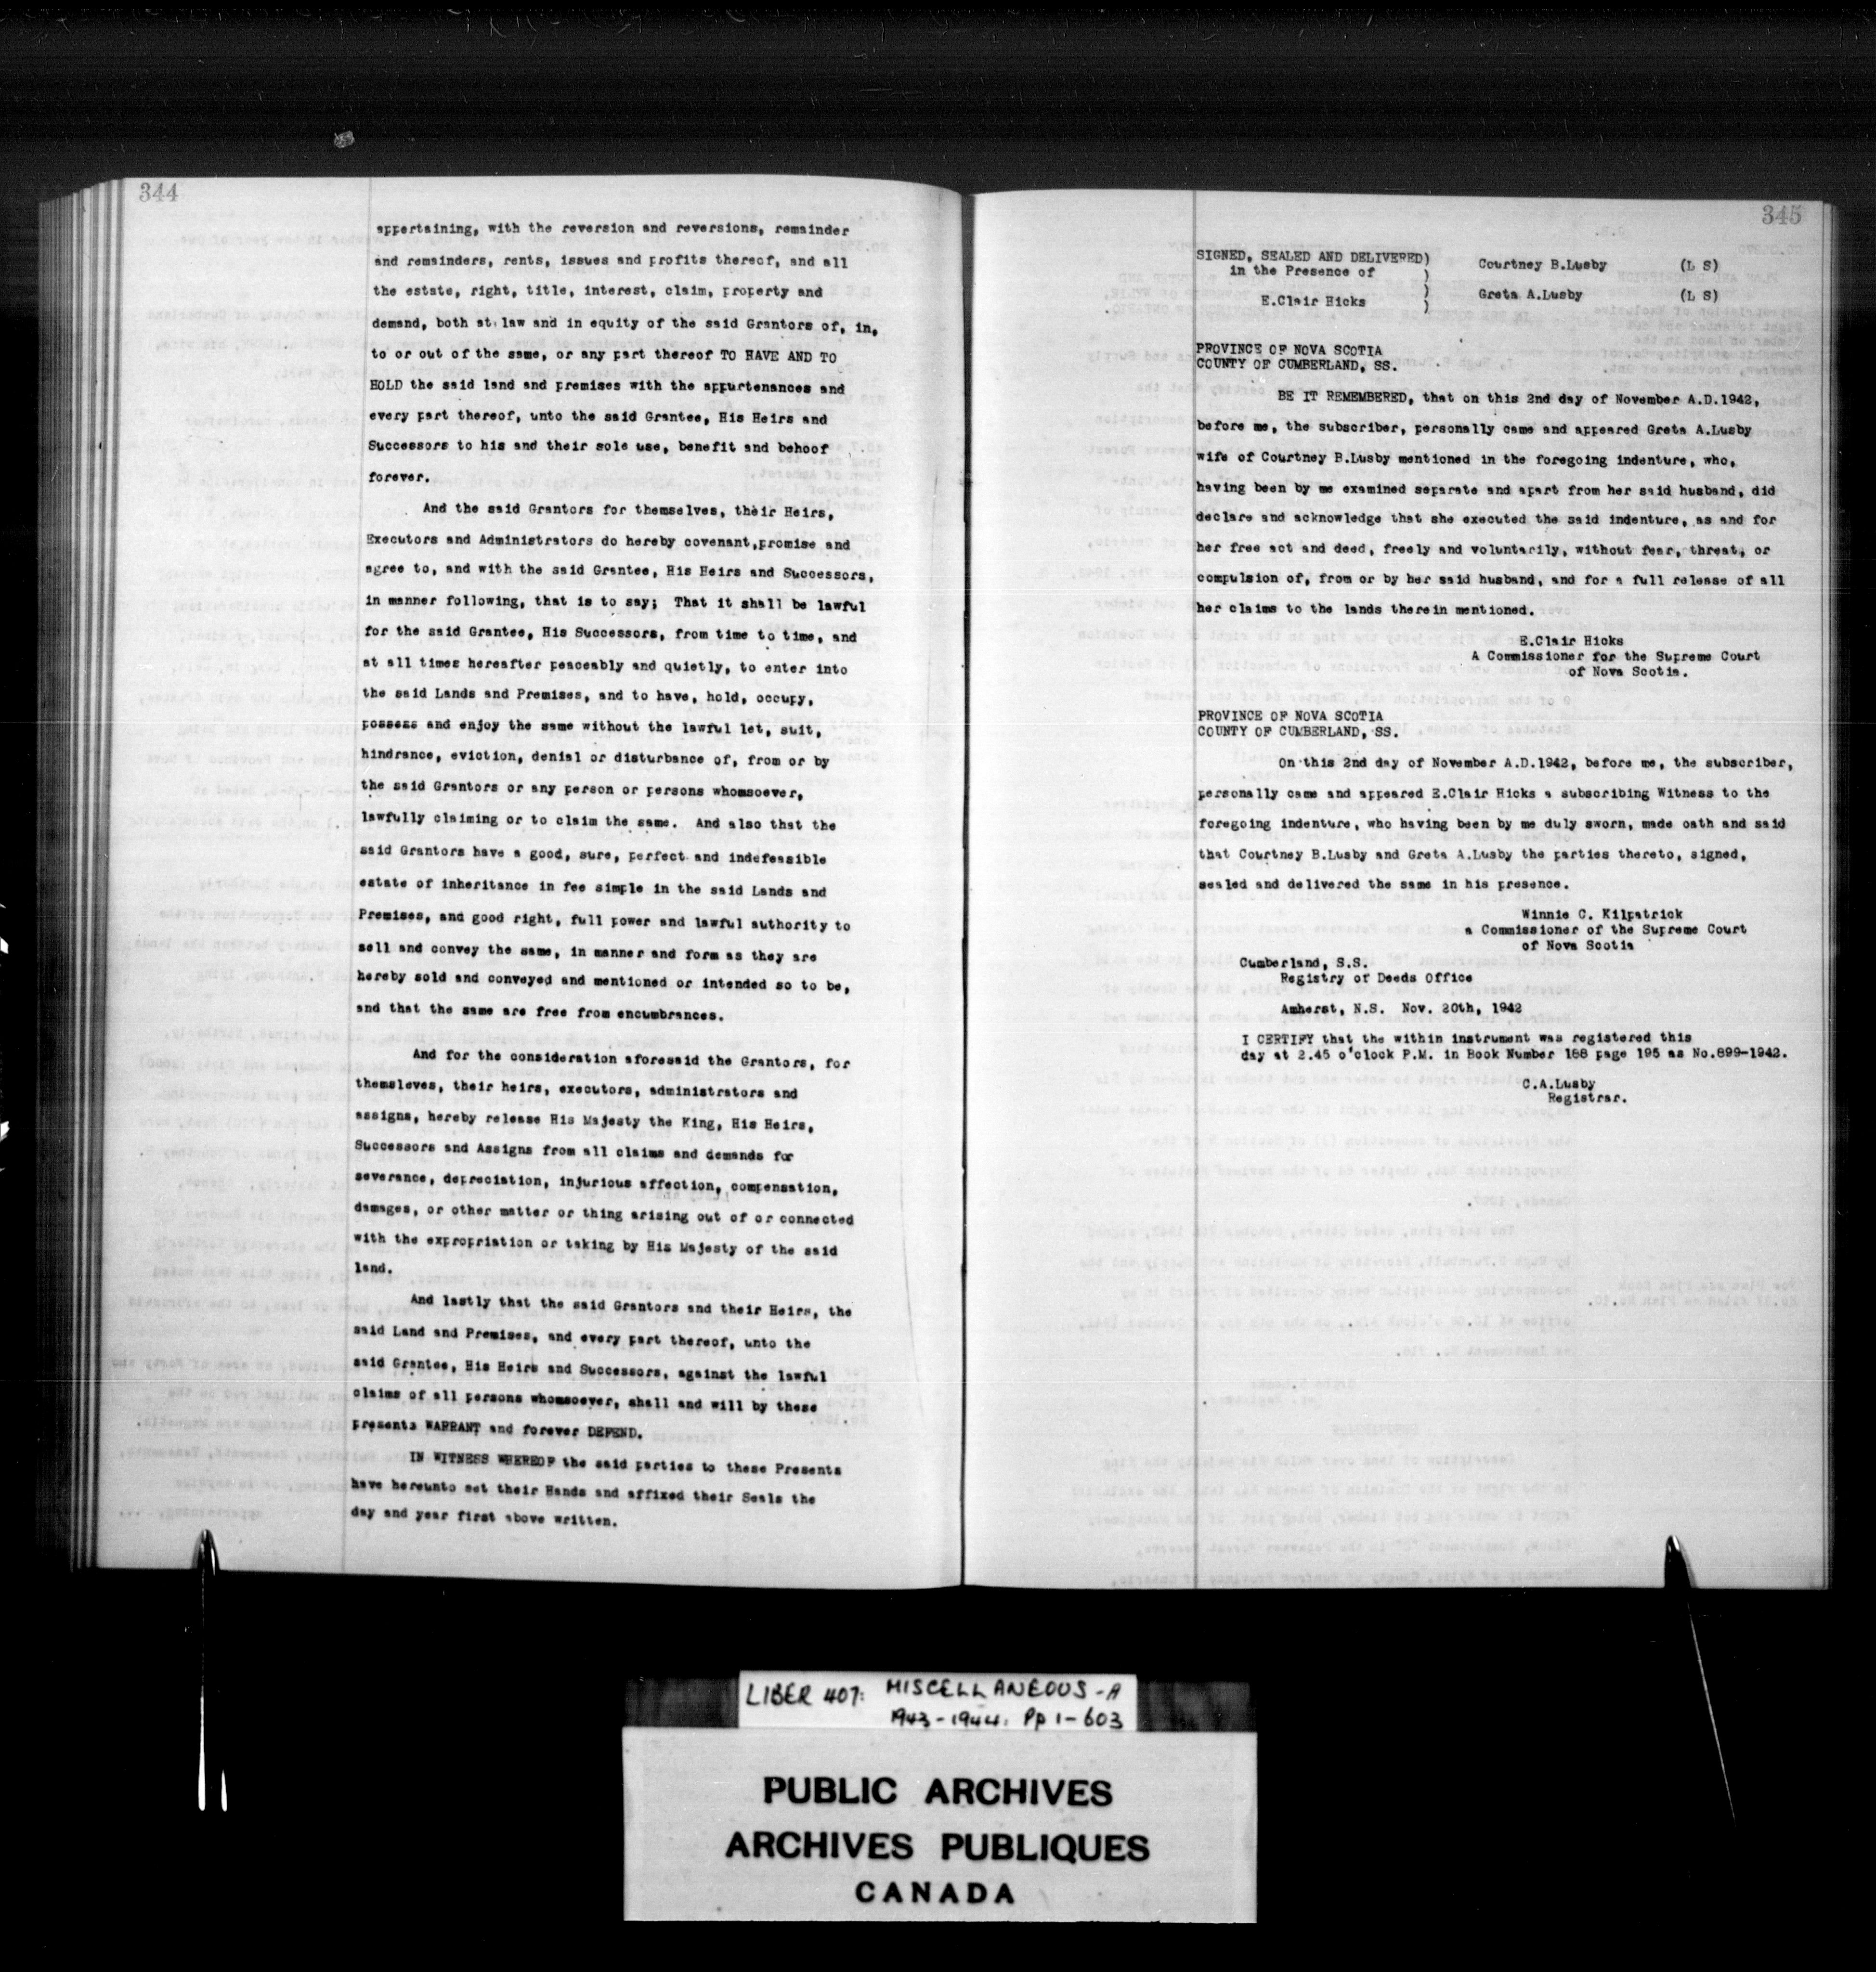 344
appertaining, with the reversion and reversions, remainder
and remainders, rents, issues and profits thereof, and all
the estate, right, title, interest, claim, property and
demand, both at law and in equity of the said Grantors of, in,
to or out of the same, or any part thereof TO HAVE AND TO
HOLD the said land and premises with the appurtenances and
every part thereof, unto the said Grantee, His Heirs and
Successors to his and their sole use, benefit and behoof
forever.
And the said Grantors for themselves, their Heirs,
Executors and Administrators do hereby covenant,promise and
agree to, and with the said Grantee, His Heirs and Successors,
in manner following, that is to say; That it shall be lawful
for the said Grantee, His Successors, from time to time, and
at all times hereafter peaceably and quietly, to enter into
the said Lands and Premises, and to have, hold, occupy,
possess and enjoy the same without the lawful let, suit,
hindrance, eviction, denial or disturbance of, from or by
the said Grantors or any person or persons whomsoever,
lawfully claiming or to claim the same. And also that the
said Grantors have a good, sure, perfect and indefeasible
estate of inheritance in fee simple in the said Lands and
Premises, and good right, full power and lawful authority to
sell and convey the same, in manner and form as they are
hereby sold and conveyed and mentioned or intended so to be,
and that the same are free from encumbrances.
And for the consideration aforesaid the Grantors, for
themsleves, their heirs, executors, administrators and
assigns, hereby release His Majesty the King, His Heirs,
Successors and Assigns from all claims and demands for
severance, depreciation, injurious affection, compensation,
damages, or other matter or thing arising out of or connected
with the expropriation or taking by His Majesty of the said
land.
And lastly that the said Grantors and their Heirs, the
said Land and Premises, and every part thereof, unto the
said Grantee, His Heirs and Successors, against the lawful
claims of all persons whomsoever, shall and will by these
presents WARRANT and forever DEFEND.
IN WITNESS WHEREOF the said parties to these Presents
have hereunto set their Hands and affixed their Seals the
day and year first above written.
345
SIGNED, SEALED AND DELIVERED)
in the Presence of )
Courtney B.Lusby (L S)
)
Greta A.Lusby (L S)
E.Clair Hicks )
PROVINCE OF NOVA SCOTIA
COUNTY OF CUMBERLAND, SS.
BE IT REMEMBERED, that on this 2nd day of November A.D.1942,
before me, the subscriber, personally came and appeared Greta A.Lusby
wife of Courtney B.Lusby mentioned in the foregoing indenture, who,
having been by me examined separate and apart from her said husband, did
declare and acknowledge that she executed the said indenture, as and for
her free act and deed, freely and voluntarily, without fear, threat, or
compulsion of, from or by her said husband, and for a full release of all
her claims to the lands therein mentioned.
E.Clair Hicks
A Commissioner for the Supreme Court
of Nova Scotia.
PROVINCE OF NOVA SCOTIA
COUNTY OF CUMBERLAND, SS.
On this 2nd day of November A.D.1942, before me, the subscriber,
personally came and appeared E.Clair Hicks a subscribing Witness to the
foregoing indenture, who having been by me duly sworn, made oath and said
that Courtney B.Lusby and Greta A.Lusby the parties thereto, signed,
sealed and delivered the same in his presence.
Winnie C. Kilpatrick
a Commissioner of the Supreme Court
of Nova Scotia
Cumberland, S.S.
Registry of Deeds Office
Amherst, N.S. Nov. 20th, 1942
I CERTIFY that the within instrument was registered this
day at 2.45 o'clock P.M. in Book Number 188 page 195 as No.899-1942.
C.A.Lusby
Registrar.
LIBER 407: MISCELLANEOUS -A
1943-1944: Pp 1-603
PUBLIC ARCHIVES
ARCHIVES PUBLIQUES
CANADA